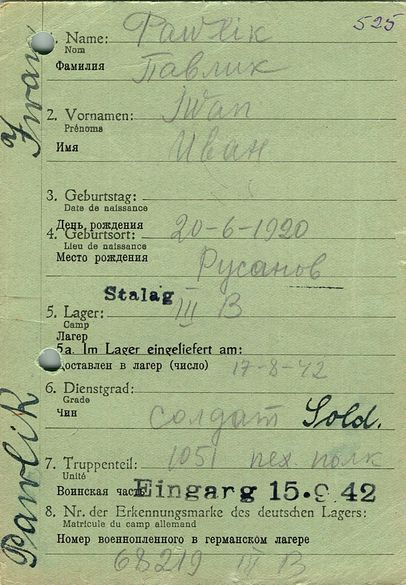 525
1. Name: Pawlik
Nom
Фамилия Павлик
2. Vornamen: Iwan
Prénoms
Имя Иван
3. Geburtstag:
Date de naissance
День рождения 20-6-1920
4. Geburtsort:
Lieu de naissance
Место рождения Русанов
Stalag
5. Lager: III B
Camp
Лагерь
5a. Im Lager eingeliefert am:
Доставлен в лагерь (число) 17-8-42
6. Dienstgrad:
Grade
Чин солдат Sold.
7. Truppenteil: 1051 пех. полк
Unité
Воинская часть Eingang 15.9.42
8. Nr. der Erkennungsmarke des deutschen Lagers:
Matricule du camp allemand
Номер военнопленного в германском лагере
68219 III B
Pawlik Iwan